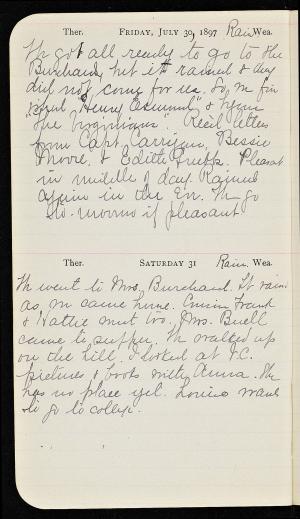 Ther. FRIDAY, JULY 30, 1897 Rain Wea.
We got all ready to go to the
Burchards but it rained & they
did not come for us. So, we fin
ished "Henry Esmond" & began
"The Virginians". Rec'd letters
from Capt. Garrison, Bessie
Moore, & Edith. Pleasant
in middle of day. Rained
again in the Eve. We go
to-morrow if pleasant
Ther. SATURDAY 31 Rain. Wea.
We went to Mrs. Burchard. It rained
as we came home. Cousin Frank
& Hattie went too. Mrs. Buell
came to supper. We walked up
on the hill. I looked at
pictures & books with Anna. She
has no place yet. wants
to go to college.